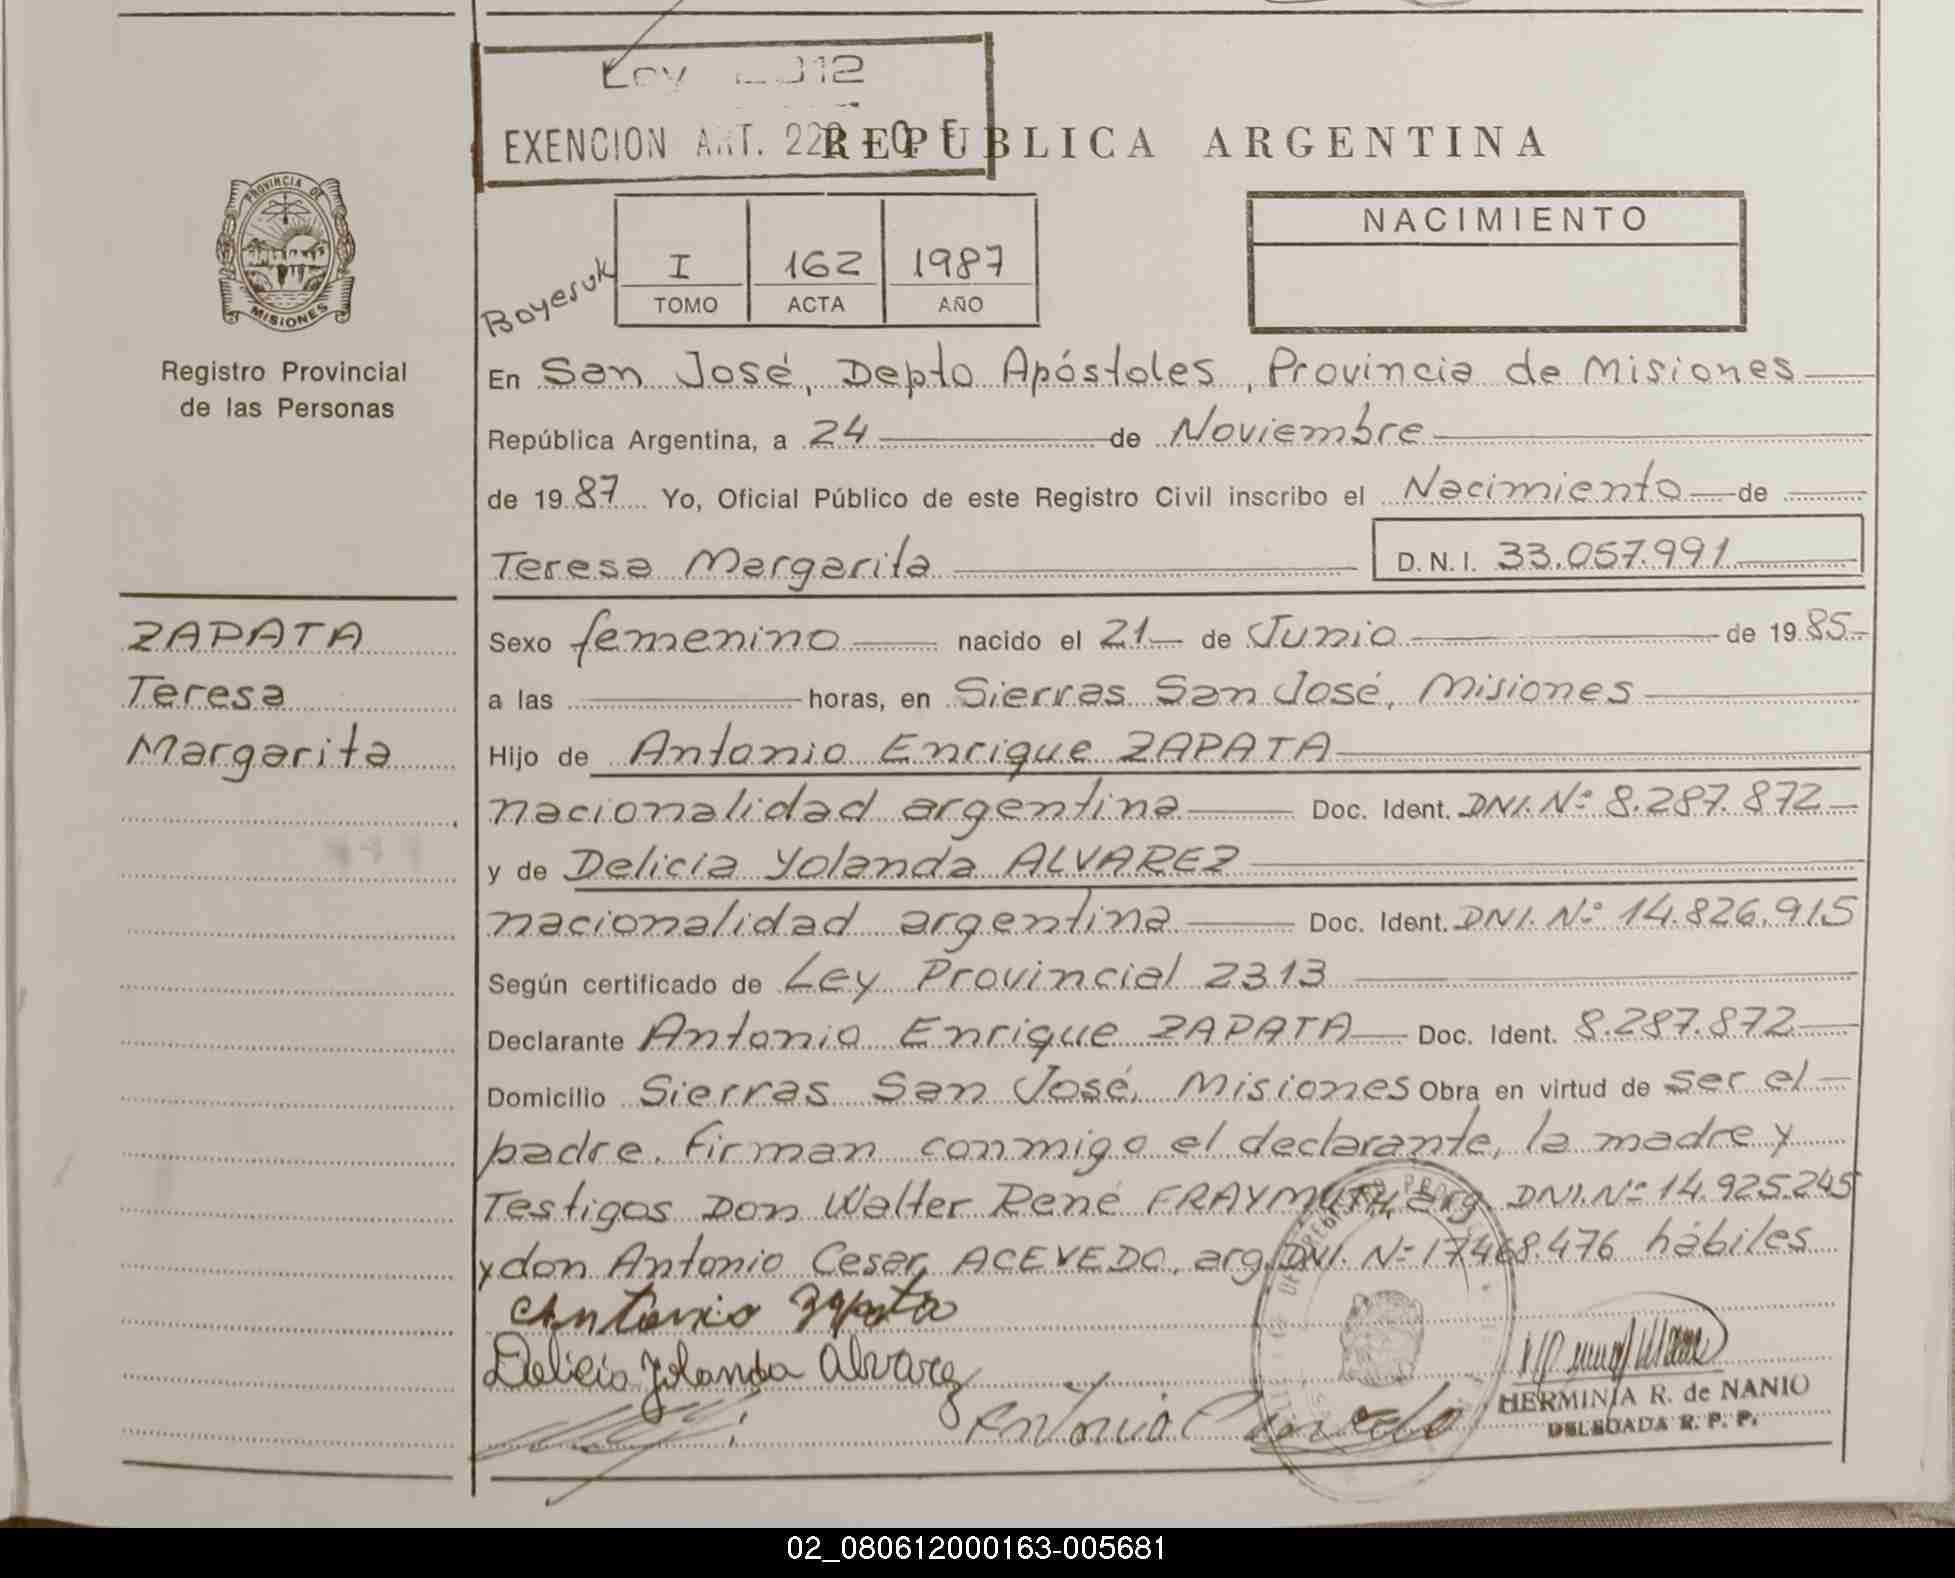 Ley 2312
EXENCION ART. 222
REPUBLICA ARGENTINA
PROVINCIA DE
MISIONES
Registro Provincial
de las Personas
Boyesuk
I 162 1987
TOMO ACTA AÑO
NACIMIENTO
En San José, Depto Apóstoles, Provincia de Misiones
República Argentina, a 24 de Noviembre
de 1987 Yo, Oficial Público de este Registro Civil inscribo el Nacimiento de
Teresa Margarita D.N.I. 33.057.991
ZAPATA
Teresa
Margarita
Sexo femenino nacido el 21 de Junio de 1985
a las horas, en Sierras San José, Misiones
Hijo de Antonio Enrique ZAPATA
nacionalidad argentina Doc. Ident. DNI. Nº 8.287.872
y de Delicia Yolanda ALVAREZ
nacionalidad argentina Doc. Ident. DNI. Nº 14.826.915
Según certificado de Ley Provincial 2313
Declarante Antonio Enrique ZAPATA Doc. Ident. 8.287.872
Domicilio Sierras San José, Misiones Obra en virtud de ser el
padre. Firman conmigo el declarante, la madre y
Testigos Don Walter René FRAYMUTH, arg. DNI. Nº 14.925.245
y don Antonio Cesar ACEVEDO, arg. DNI. Nº 17468.476 hábiles
Antonio Zapata
Delicia Yolanda Alvarez
Antonio
HERMINIA R. de NANIO
DELEGADA R. P. P.
02_080612000163-005681